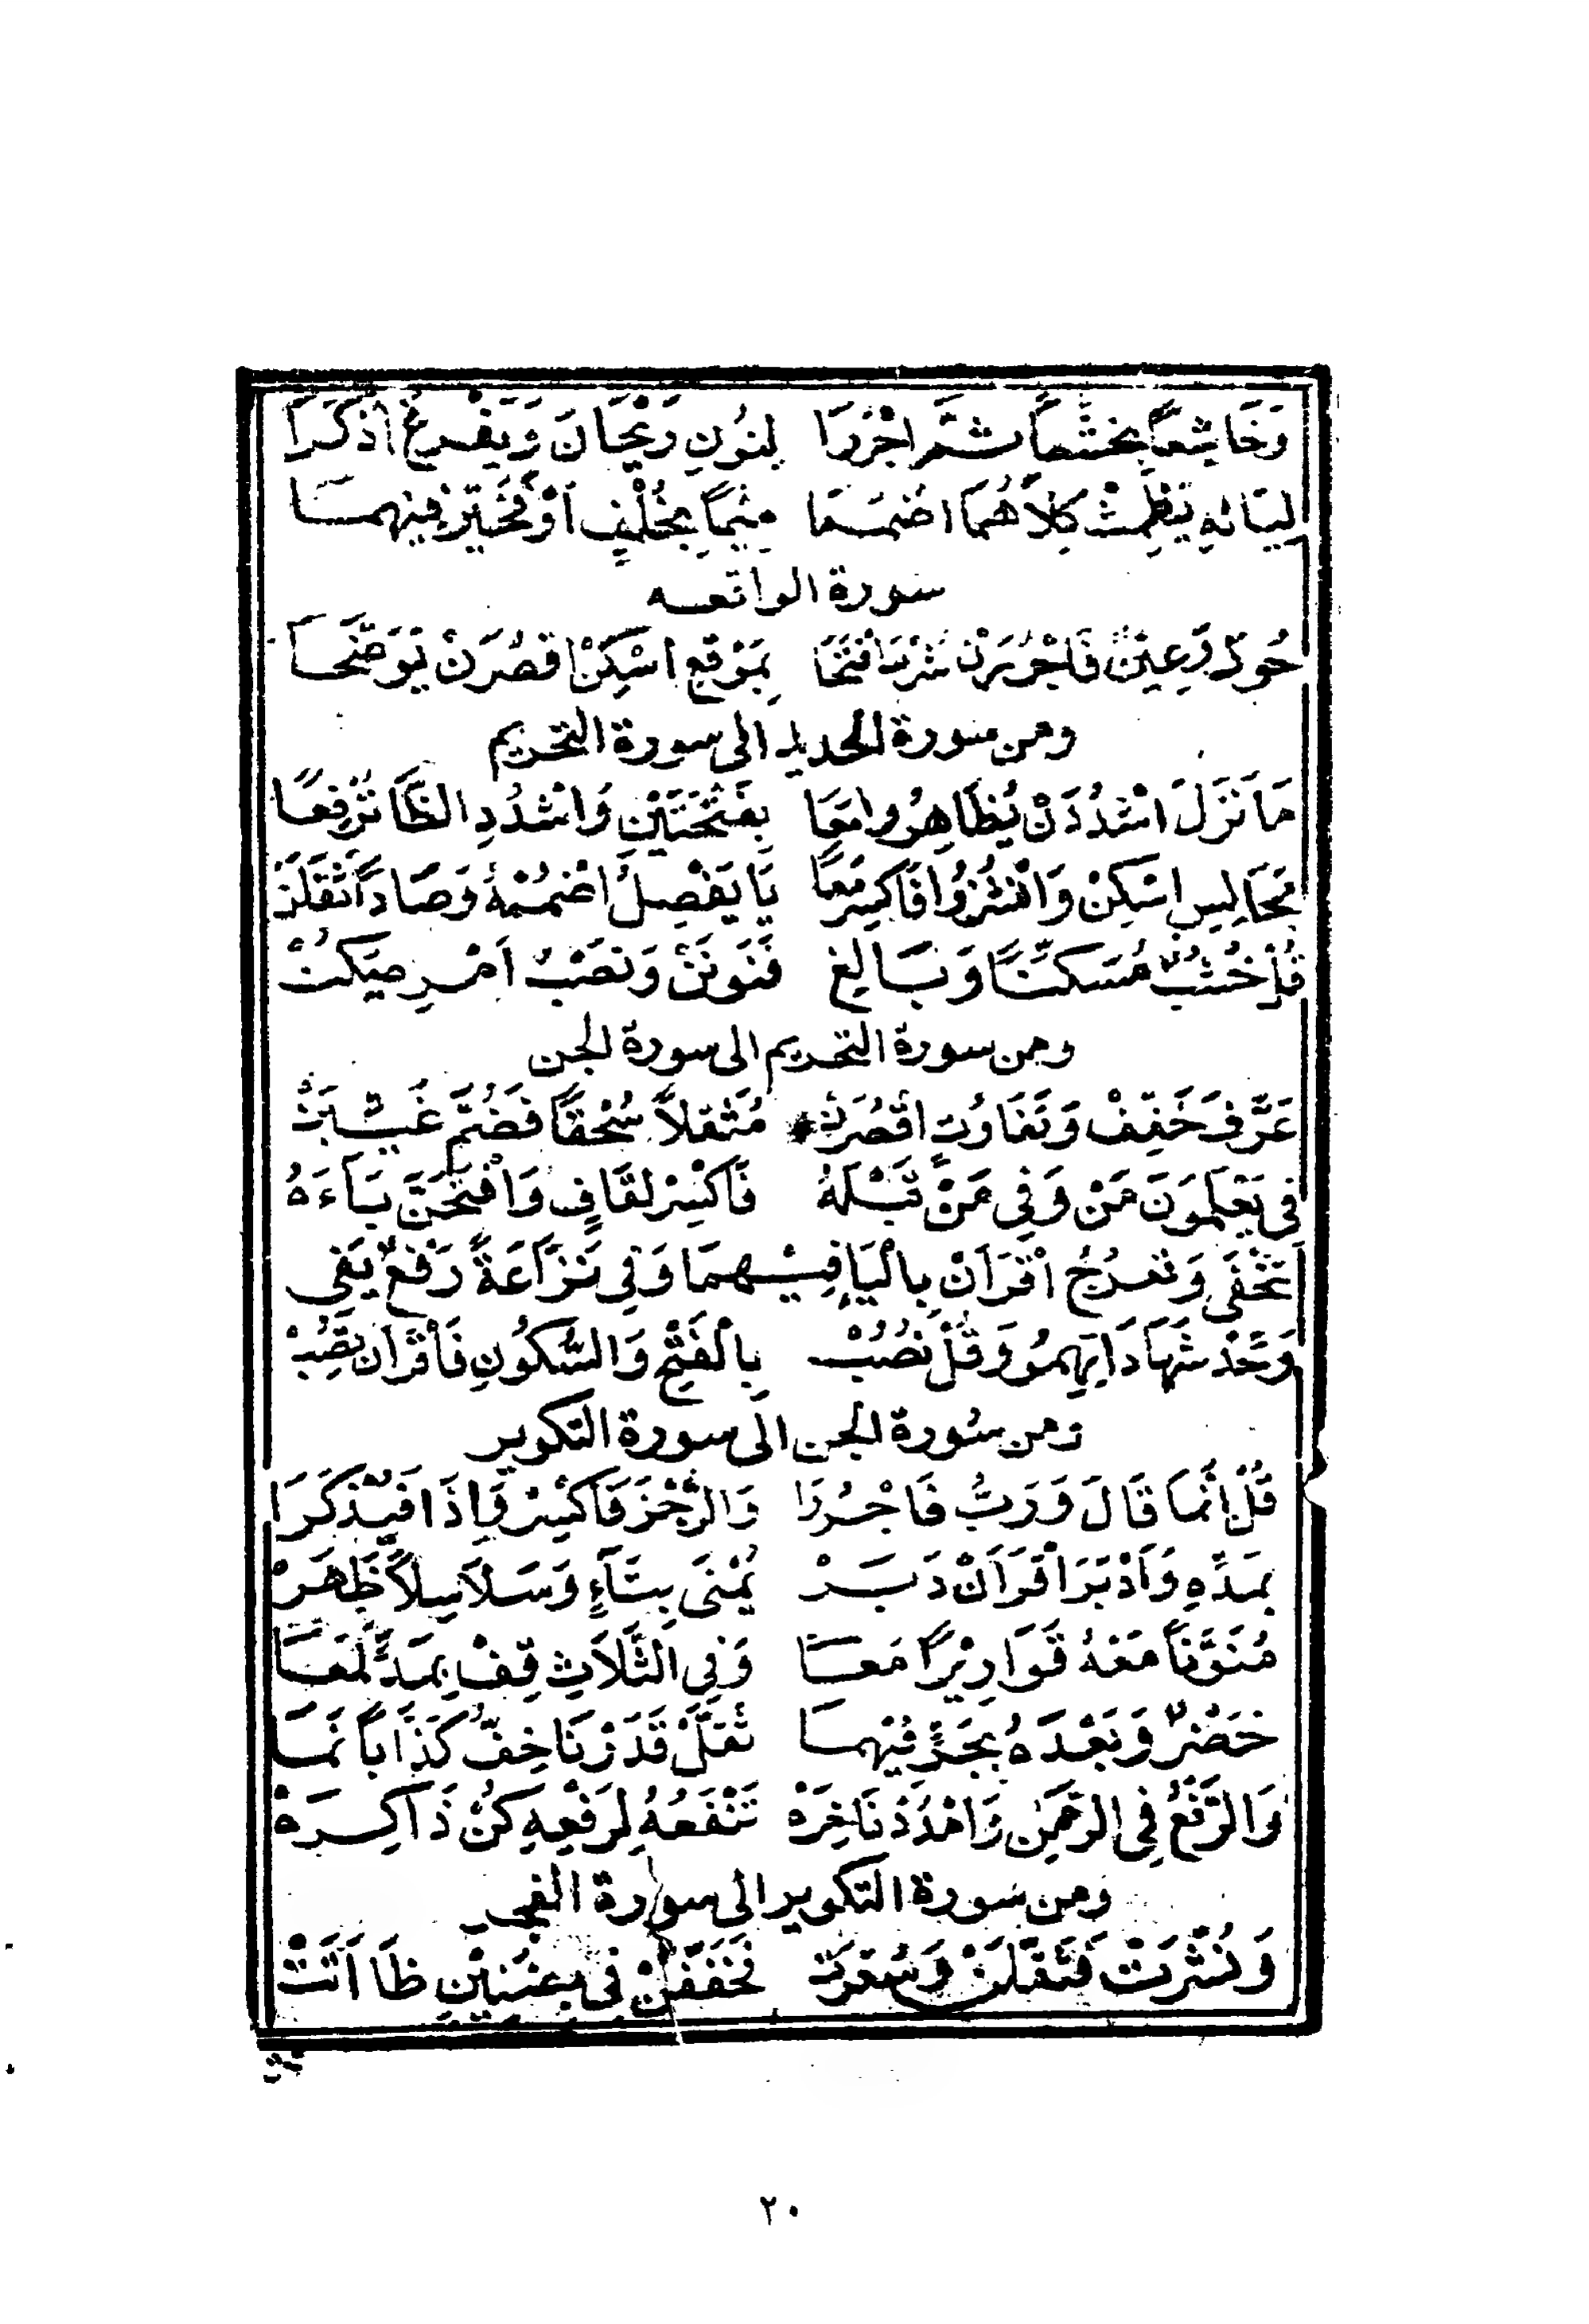 وَخَاشِعاً بِخُشَّعاً شَتَّمَ اجْرُرَا لِنُونِ رَيْحَانَ وَيَفْرِغُ اذْكُرَا
لِيَائِهِ يَطْمِثْ كِلاَهُمَا اضْمُمَا مِيْماً بِخُلْفٍ أَوْ فَخَيِّرْ فِيهِمَا
سورة الواقعه
حُورٌ وَعِينٌ فَاجْرُرَنْ شُرْبَ افْتَحَا بِمَوْقِعِ اسْكِنْ اقْصُرَنْ تَوَضَّحَا
ومن سورة الحديد الى سورة التحريم
مَا نَزَلَ اشْدُدَنْ يُظَاهِرُوا مَعَا بِفَتْحَتَيْنِ وَاشْدُدِ الظَّا تُرْفَعَا
مَجَالِسِ اسْكِنْ وَانْشُزُوا فَاكْسِرْ مَعاً يَا يَفْصِلُ اضْمُمْهُ وَصَاداً ثَقِّلَنْ
قُلْ خُشْبٌ مُسَكَّنًا وَبَالِغ فَنَوِّنَنْ وَنَصْبُ أَمْرِ
ومن سورة التحريم الى سورة الجن
عَرَّفَ خَفِّفْ وَتَفَاوُتِ اقْصُرَنْ * مُثَقِّلاً سُحْقاً فَضُمَّ
فِي يَعْلَمُونَ مَنْ وَفِي مَنْ قَبْلَهُ فَاكْسِرْ لِقَافٍ وَافْتَحَنَّ بَاءَهُ
تَخْفَى وَتَعْرُجُ اقْرَأَنْ بِالْيَا فِيْهِمَا وَفِي نَزَّاعَةً رَفْعٌ يَفِي
وَحِّدْ شَهَادَاتِهِمُو وَقُلْ نُصُبْ بِالْفَتْحِ وَالسُّكُونِ فَاقْرَأْ
ومن سورة الجن الى سورة التكوير
قُلْ إِنَّمَا قَالَ وَرَبُّ فَاجْرُرَا وَالرُّجْزَ فَاكْسِرْ وَإِذَا فَيُذْكَرَا
بِمَدِّهِ وَأَدْبَرَ اقْرَأَنْ دَبَرْ يُمْنَى بِتَاءٍ وَسَلاَسِلاً ظَهَرْ
مُنَوَّنًا مَعْهُ قَوَارِيْرًا مَعَا وَفِي الثَّلَاثِ قِفْ بِمَدٍّ لَمَعَا
خُضْرٌ وَبَعْدَهُ بِجَرٍّ فِيْهِمَا ثَقِّلْ قَدَرْنَا خِفُّ كِذَّاباً نَمَا
وَالرَّفْعُ فِي الرَّحْمٰنِ وَامْدُدْ نَاخِرَهْ تَنْفَعُهُ لِرَفْعِهِ كُنْ ذَاكِرَهْ
ومن سورة التكوير الى سورة الفجر
وَنُشِرَتْ فَثَقِّلَنْ وَسُعِّرَتْ فَخَفِّفَنْ فِي بِضَنِيْنٍ ظَا أَتَتْ
٢٠